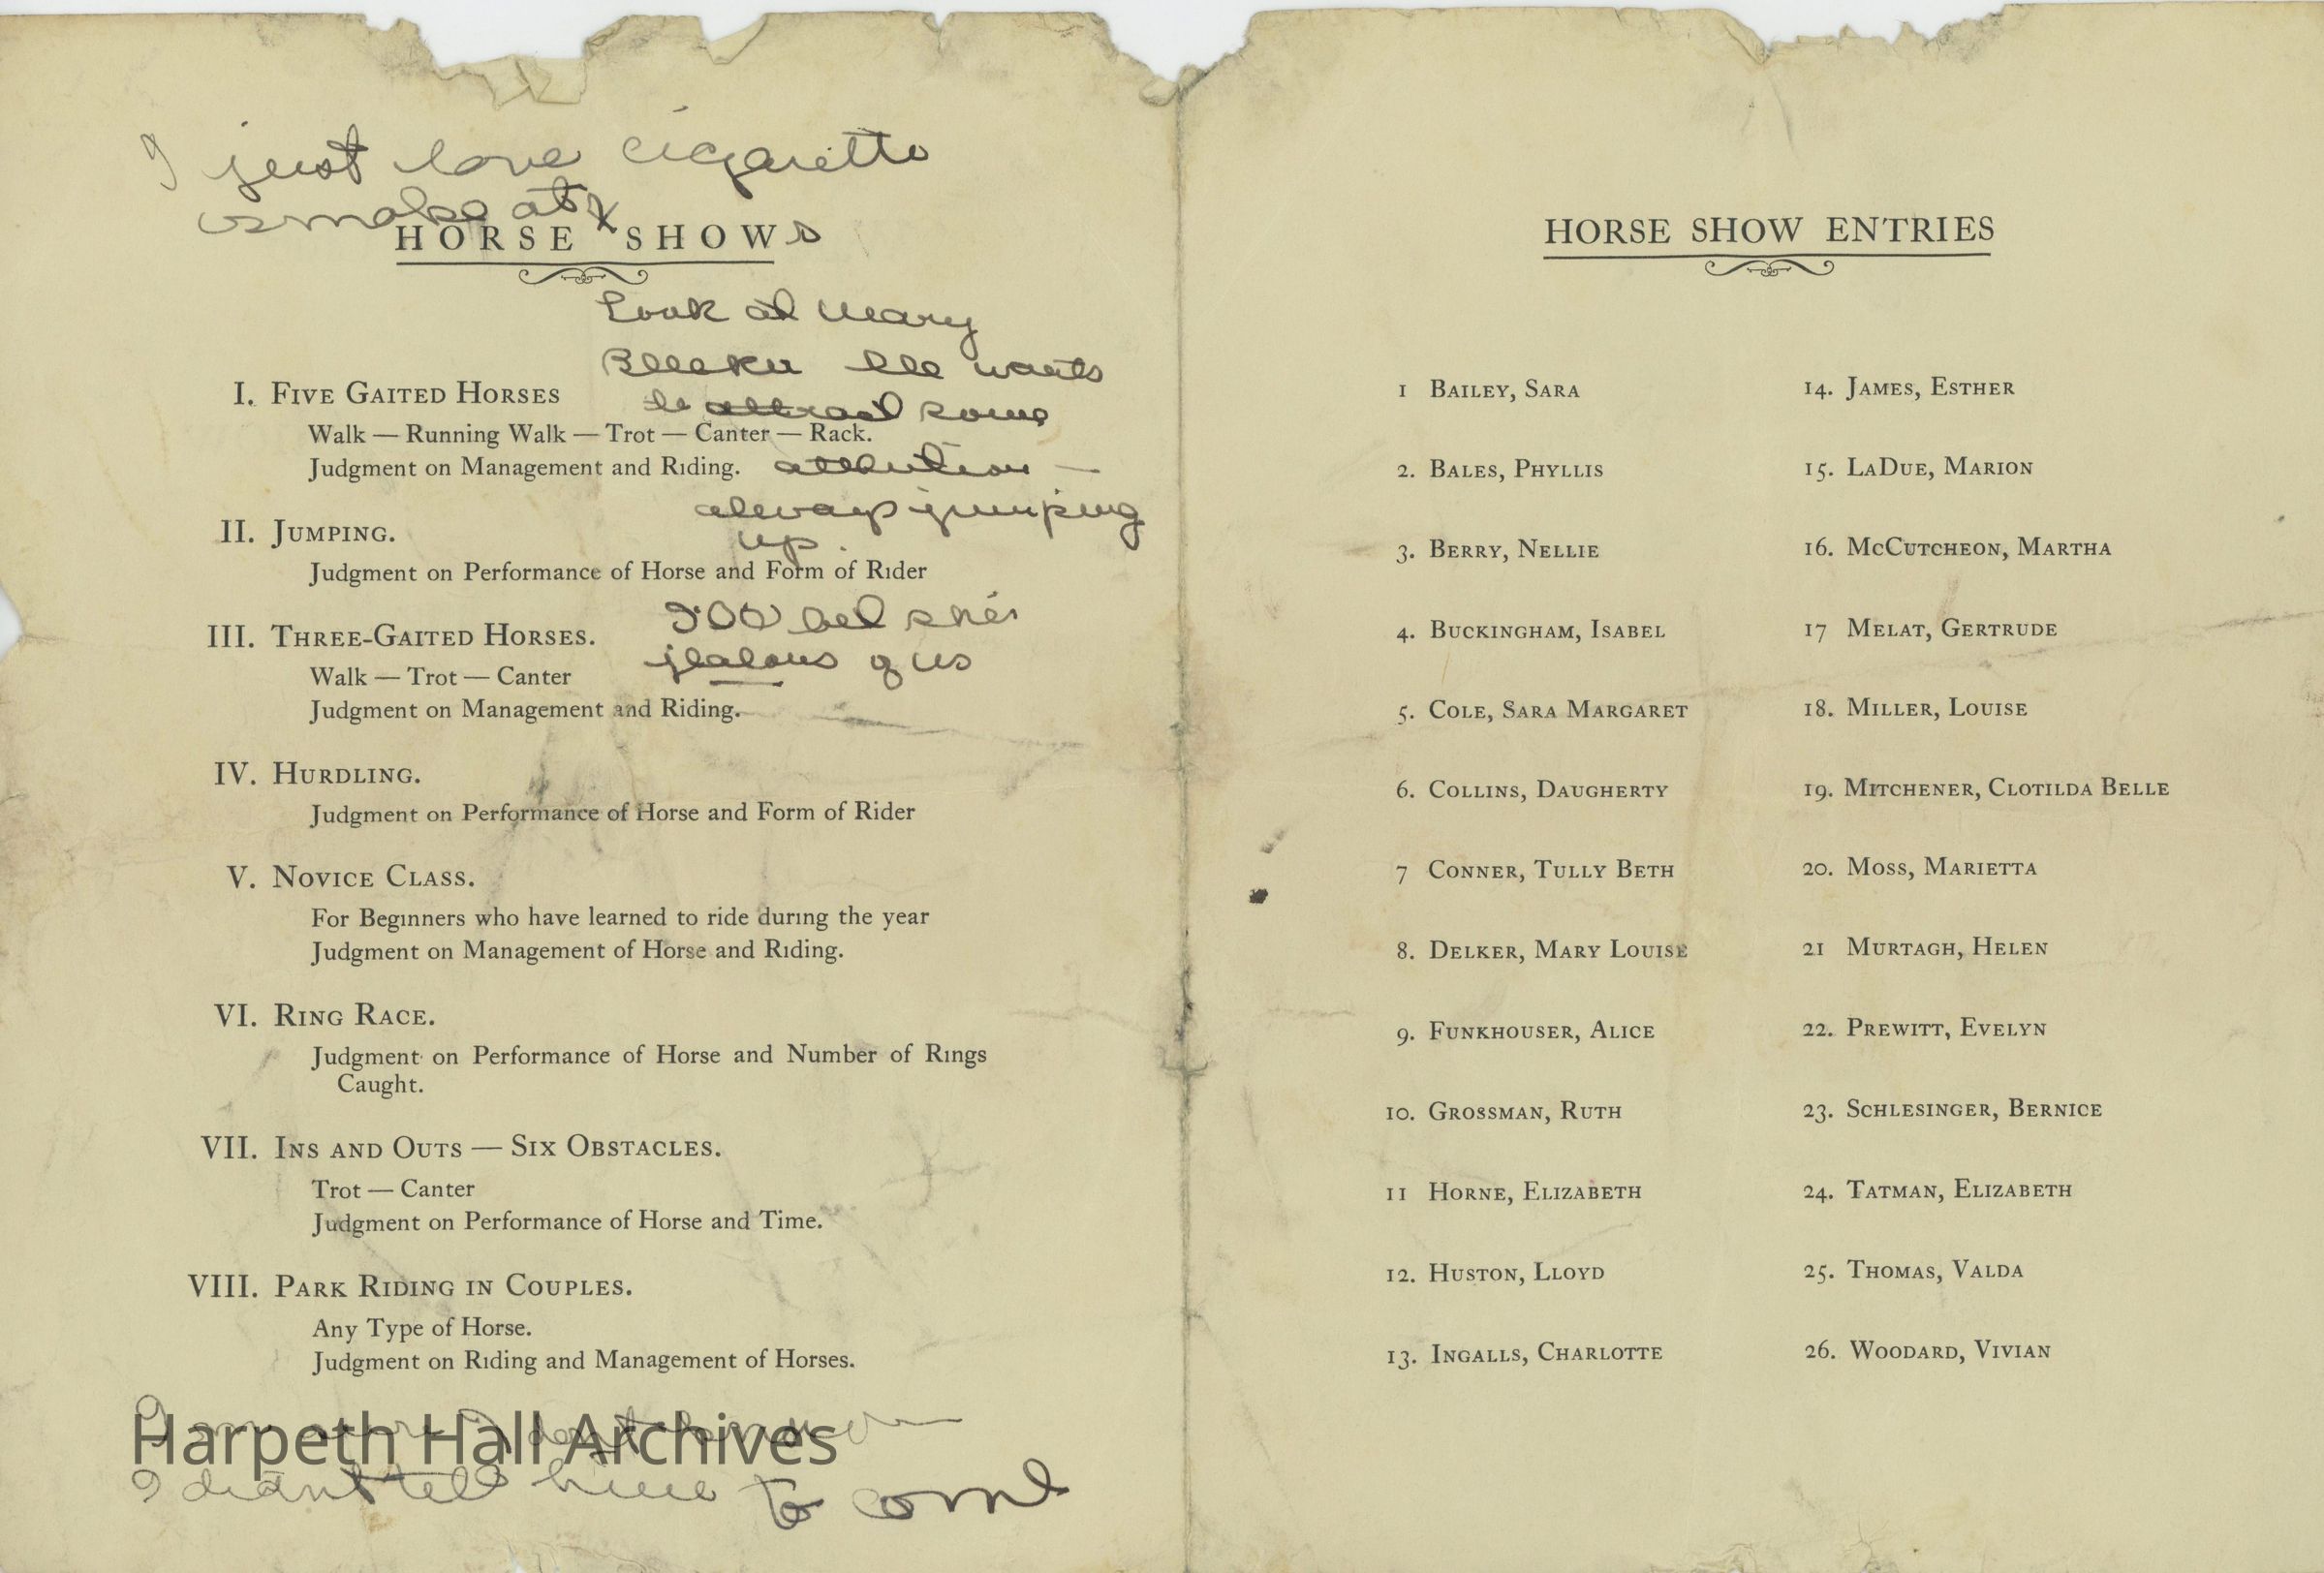 I just love cigarette
smoke at
HORSE SHOWs
Look at Mary
wants
I. FIVE GAITED HORSES
to attract some
Walk — Running Walk — Trot — Canter — Rack.
Judgment on Management and Riding.
attention —
always jumping
up.
II. JUMPING.
Judgment on Performance of Horse and Form of Rider
bet she's
III. THREE-GAITED HORSES.
jealous of us
Walk — Trot — Canter
Judgment on Management and Riding.
IV. HURDLING.
Judgment on Performance of Horse and Form of Rider
V. NOVICE CLASS.
For Beginners who have learned to ride during the year
Judgment on Management of Horse and Riding.
VI. RING RACE.
Judgment on Performance of Horse and Number of Rings
Caught.
VII. INS AND OUTS — SIX OBSTACLES.
Trot — Canter
Judgment on Performance of Horse and Time.
VIII. PARK RIDING IN COUPLES.
Any Type of Horse.
Judgment on Riding and Management of Horses.
Harpeth Hall Archives
I don't know
I didn't tell him to come
HORSE SHOW ENTRIES
1 BAILEY, SARA
2. BALES, PHYLLIS
3. BERRY, NELLIE
4. BUCKINGHAM, ISABEL
5. COLE, SARA MARGARET
6. COLLINS, DAUGHERTY
7 CONNER, TULLY BETH
8. DELKER, MARY LOUISE
9. FUNKHOUSER, ALICE
10. GROSSMAN, RUTH
11 HORNE, ELIZABETH
12. HUSTON, LLOYD
13. INGALLS, CHARLOTTE
14. JAMES, ESTHER
15. LADUE, MARION
16. MCCUTCHEON, MARTHA
17 MELAT, GERTRUDE
18. MILLER, LOUISE
19. MITCHENER, CLOTILDA BELLE
20. MOSS, MARIETTA
21 MURTAGH, HELEN
22. PREWITT, EVELYN
23. SCHLESINGER, BERNICE
24. TATMAN, ELIZABETH
25. THOMAS, VALDA
26. WOODARD, VIVIAN